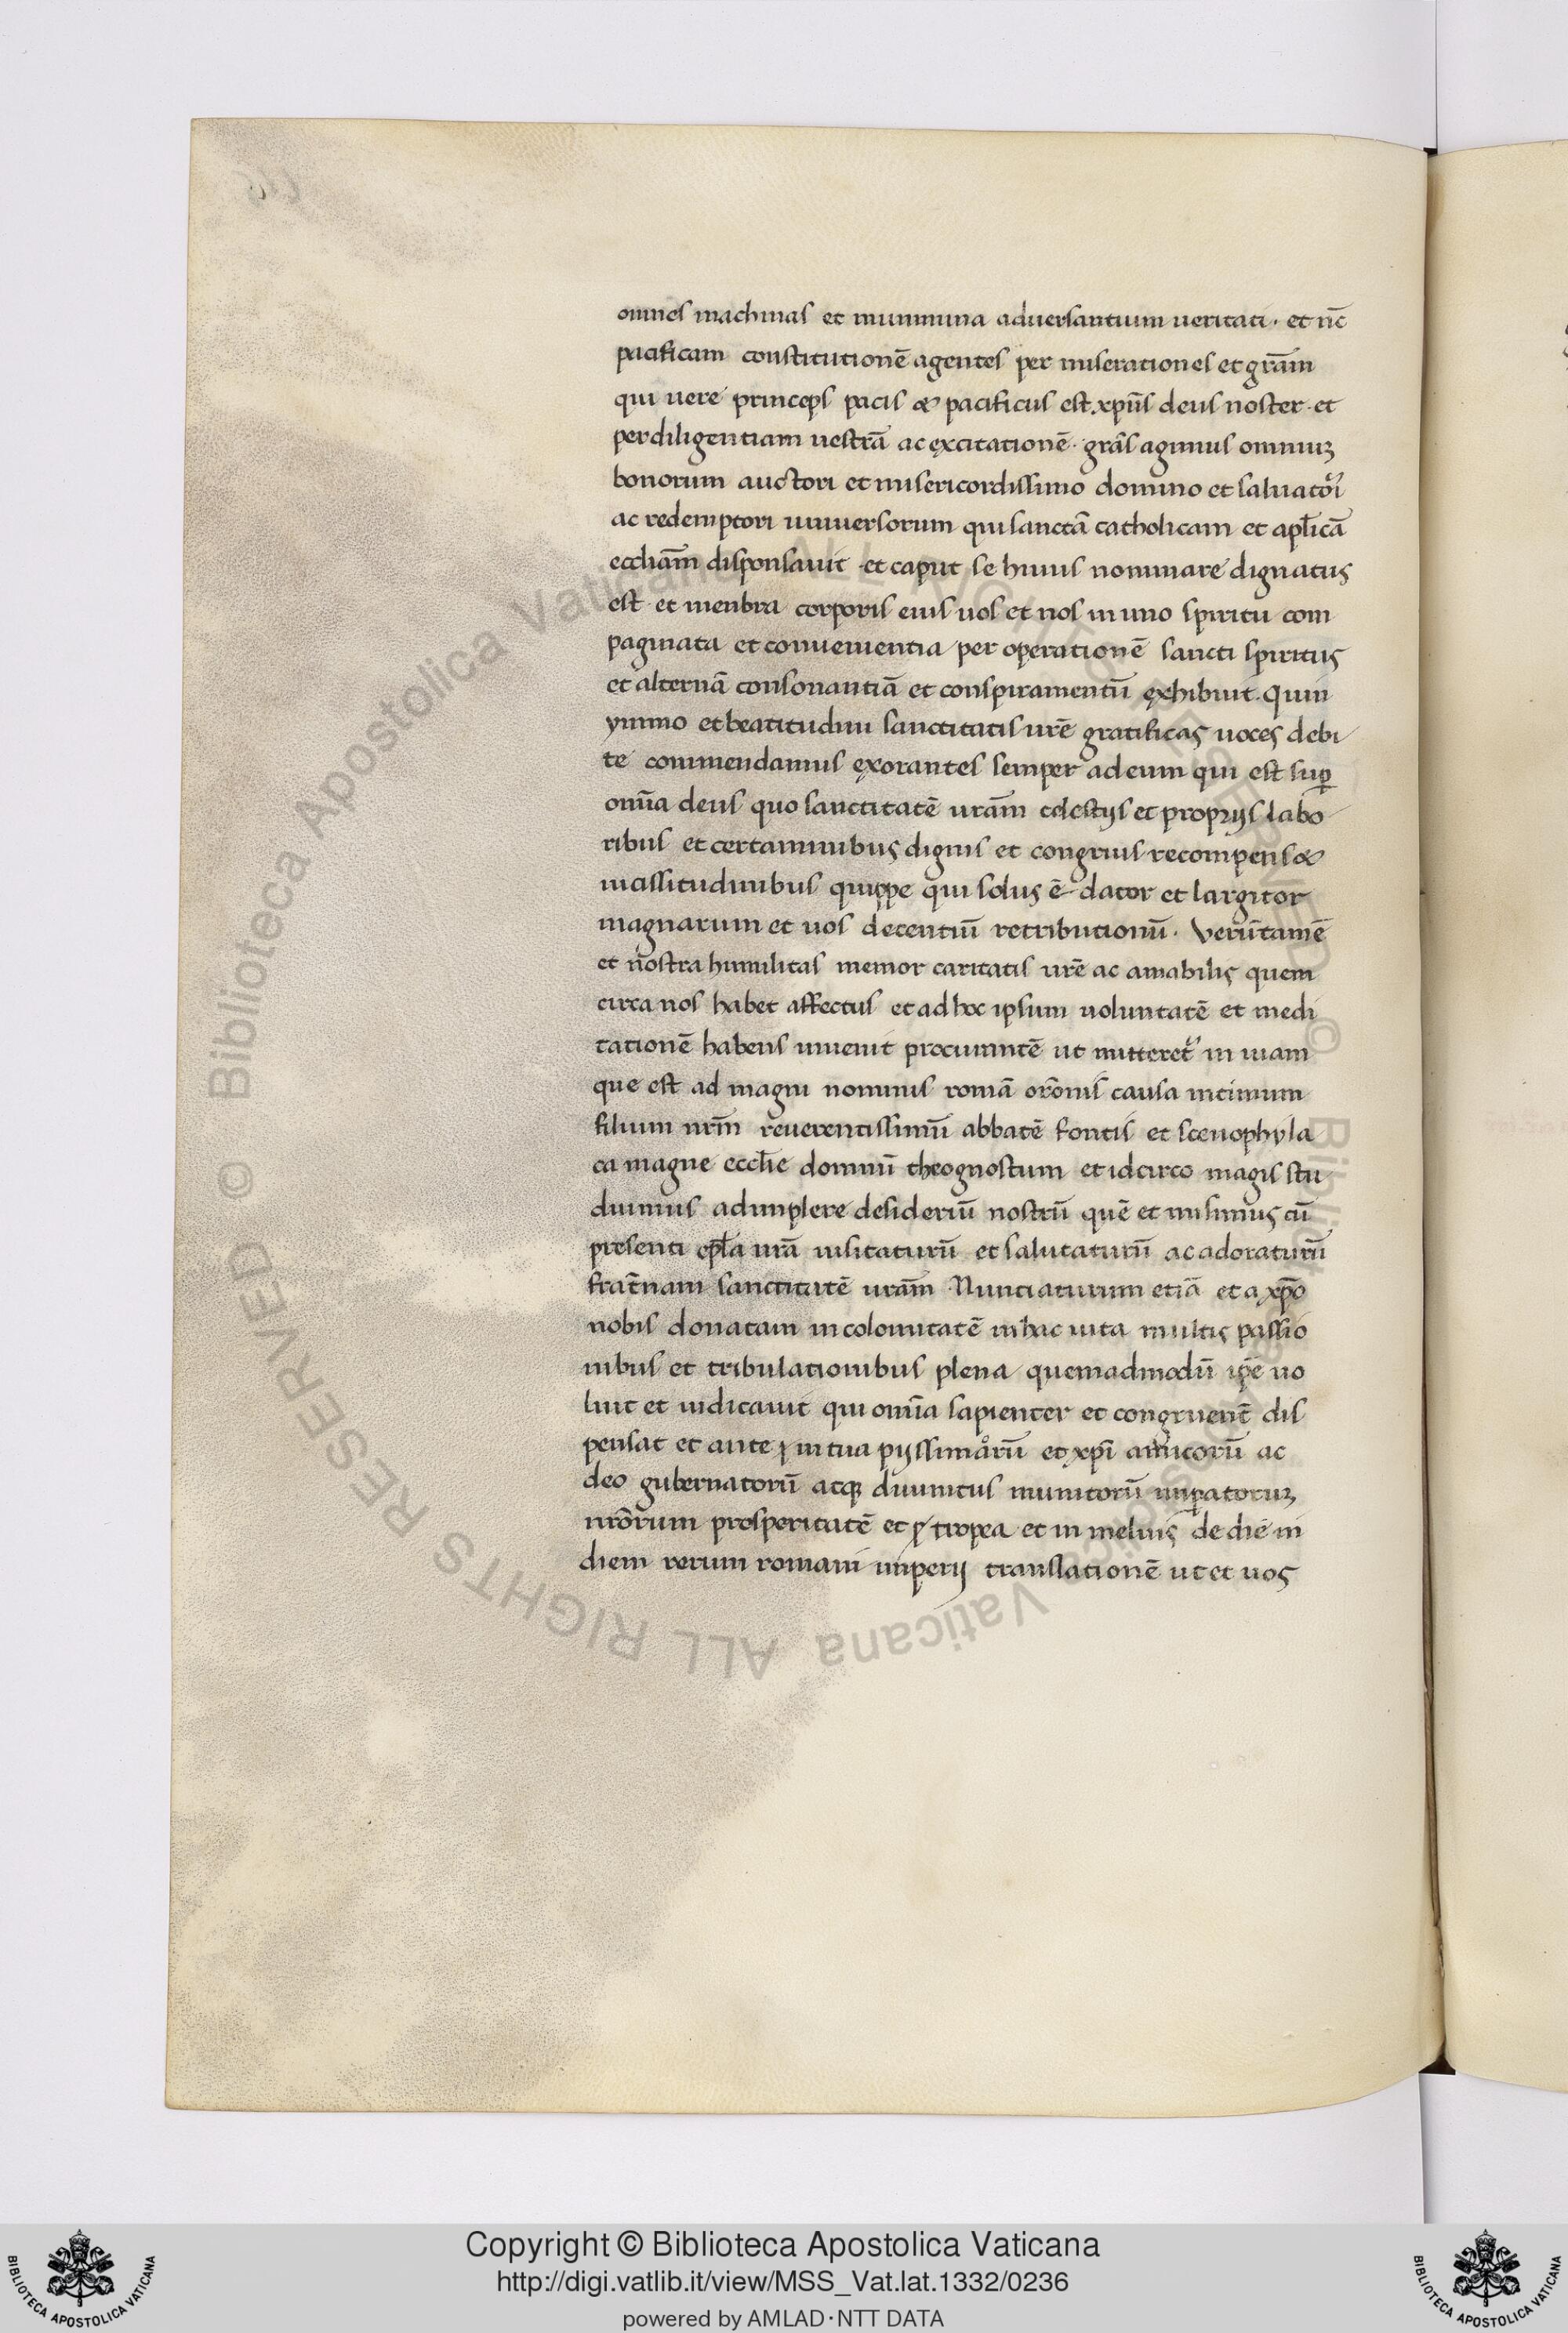 omnes machinas et munimina aduersantium ueritati · et nc̄
pacificam constitutionē agentes per miserationes et grām
qui uere princeps pacis & pacificus est xpūs deus noster · et
perdiligentiam uestrā ac excitationē · grās agimus omniuꝫ
bonorum auctori et misericordissimo domino et saluatori
ac redemptori uniuersorum qui sanctā catholicam et aplicā
eccliam̄ disponsauit · et caput se huius nominare dignatus
est · et menbra corporis eius uos et nos in uno spiritu com
paginata et conuenientia per operationē sancti spiritus
et alternā consonantiā et conspiramentū ęxhibuit · Quin
ymmo et beatitudini sanctitatis urē gratificas uoces debi
te commendamus ęxorantes semper ad eum qui est suꝑ
omīa deus quo sanctitatē urām celestijs et proprijs labo
ribus et certaminibus dignis et congruis recompens&
uicissitudinibus quippe qui solus ē dator et largitor
magnarum et uos decentiū retributionū · Verūtamē
et nostra humilitas memor caritatis urē ac amabilis quem
circa nos habet affectus et ad hoc ipsum uoluntatē et medi
tationē habens inuenit procurantē ut mitteret̉ in uiam
que est ad magni nominis romā orōnis causa intimum
filium nrm̄ reuerentissimū abbatē fontis et scenophyla
ca magne ecclīe domnū theognostum et idcirco magis stu
duimus adimplere desideriū nostrū quē et misimus cū
presenti epl̄a nrā uisitaturū et salutaturū ac adoraturū
frat̄nam sanctitatē urām · Nunciaturum etiā et a xp̄o
nobis donatam incolomitatē in hac uita multis passio
nibus et tribulationibus plena quemadmodū ip̄e uo
luit et iudicauit qui omīa sapienter et congruent̄ dis
pensat et ante ꝓ in tua pijssimaꝝ et xpī amicorū ac
deo gubernatorū atqꝫ diuinitus munitorū imꝑatoruꝫ
nrōrum prosperitatē et ꝓ tropea et in melius de die in
diem rerum romani imperij translationē ut et uos
Copyright © Biblioteca Apostolica Vaticana
http://digi.vatlib.it/view/MSS_Vat.lat.1332/0236
powered by AMLAD·NTT DATA
BIBLIOTECA APOSTOLICA VATICANA
BIBLIOTECA APOSTOLICA VATICANA
© Biblioteca Apostolica Vaticana ALL RIGHTS RESERVED
© Biblioteca Apostolica Vaticana ALL RIGHTS RESERVED